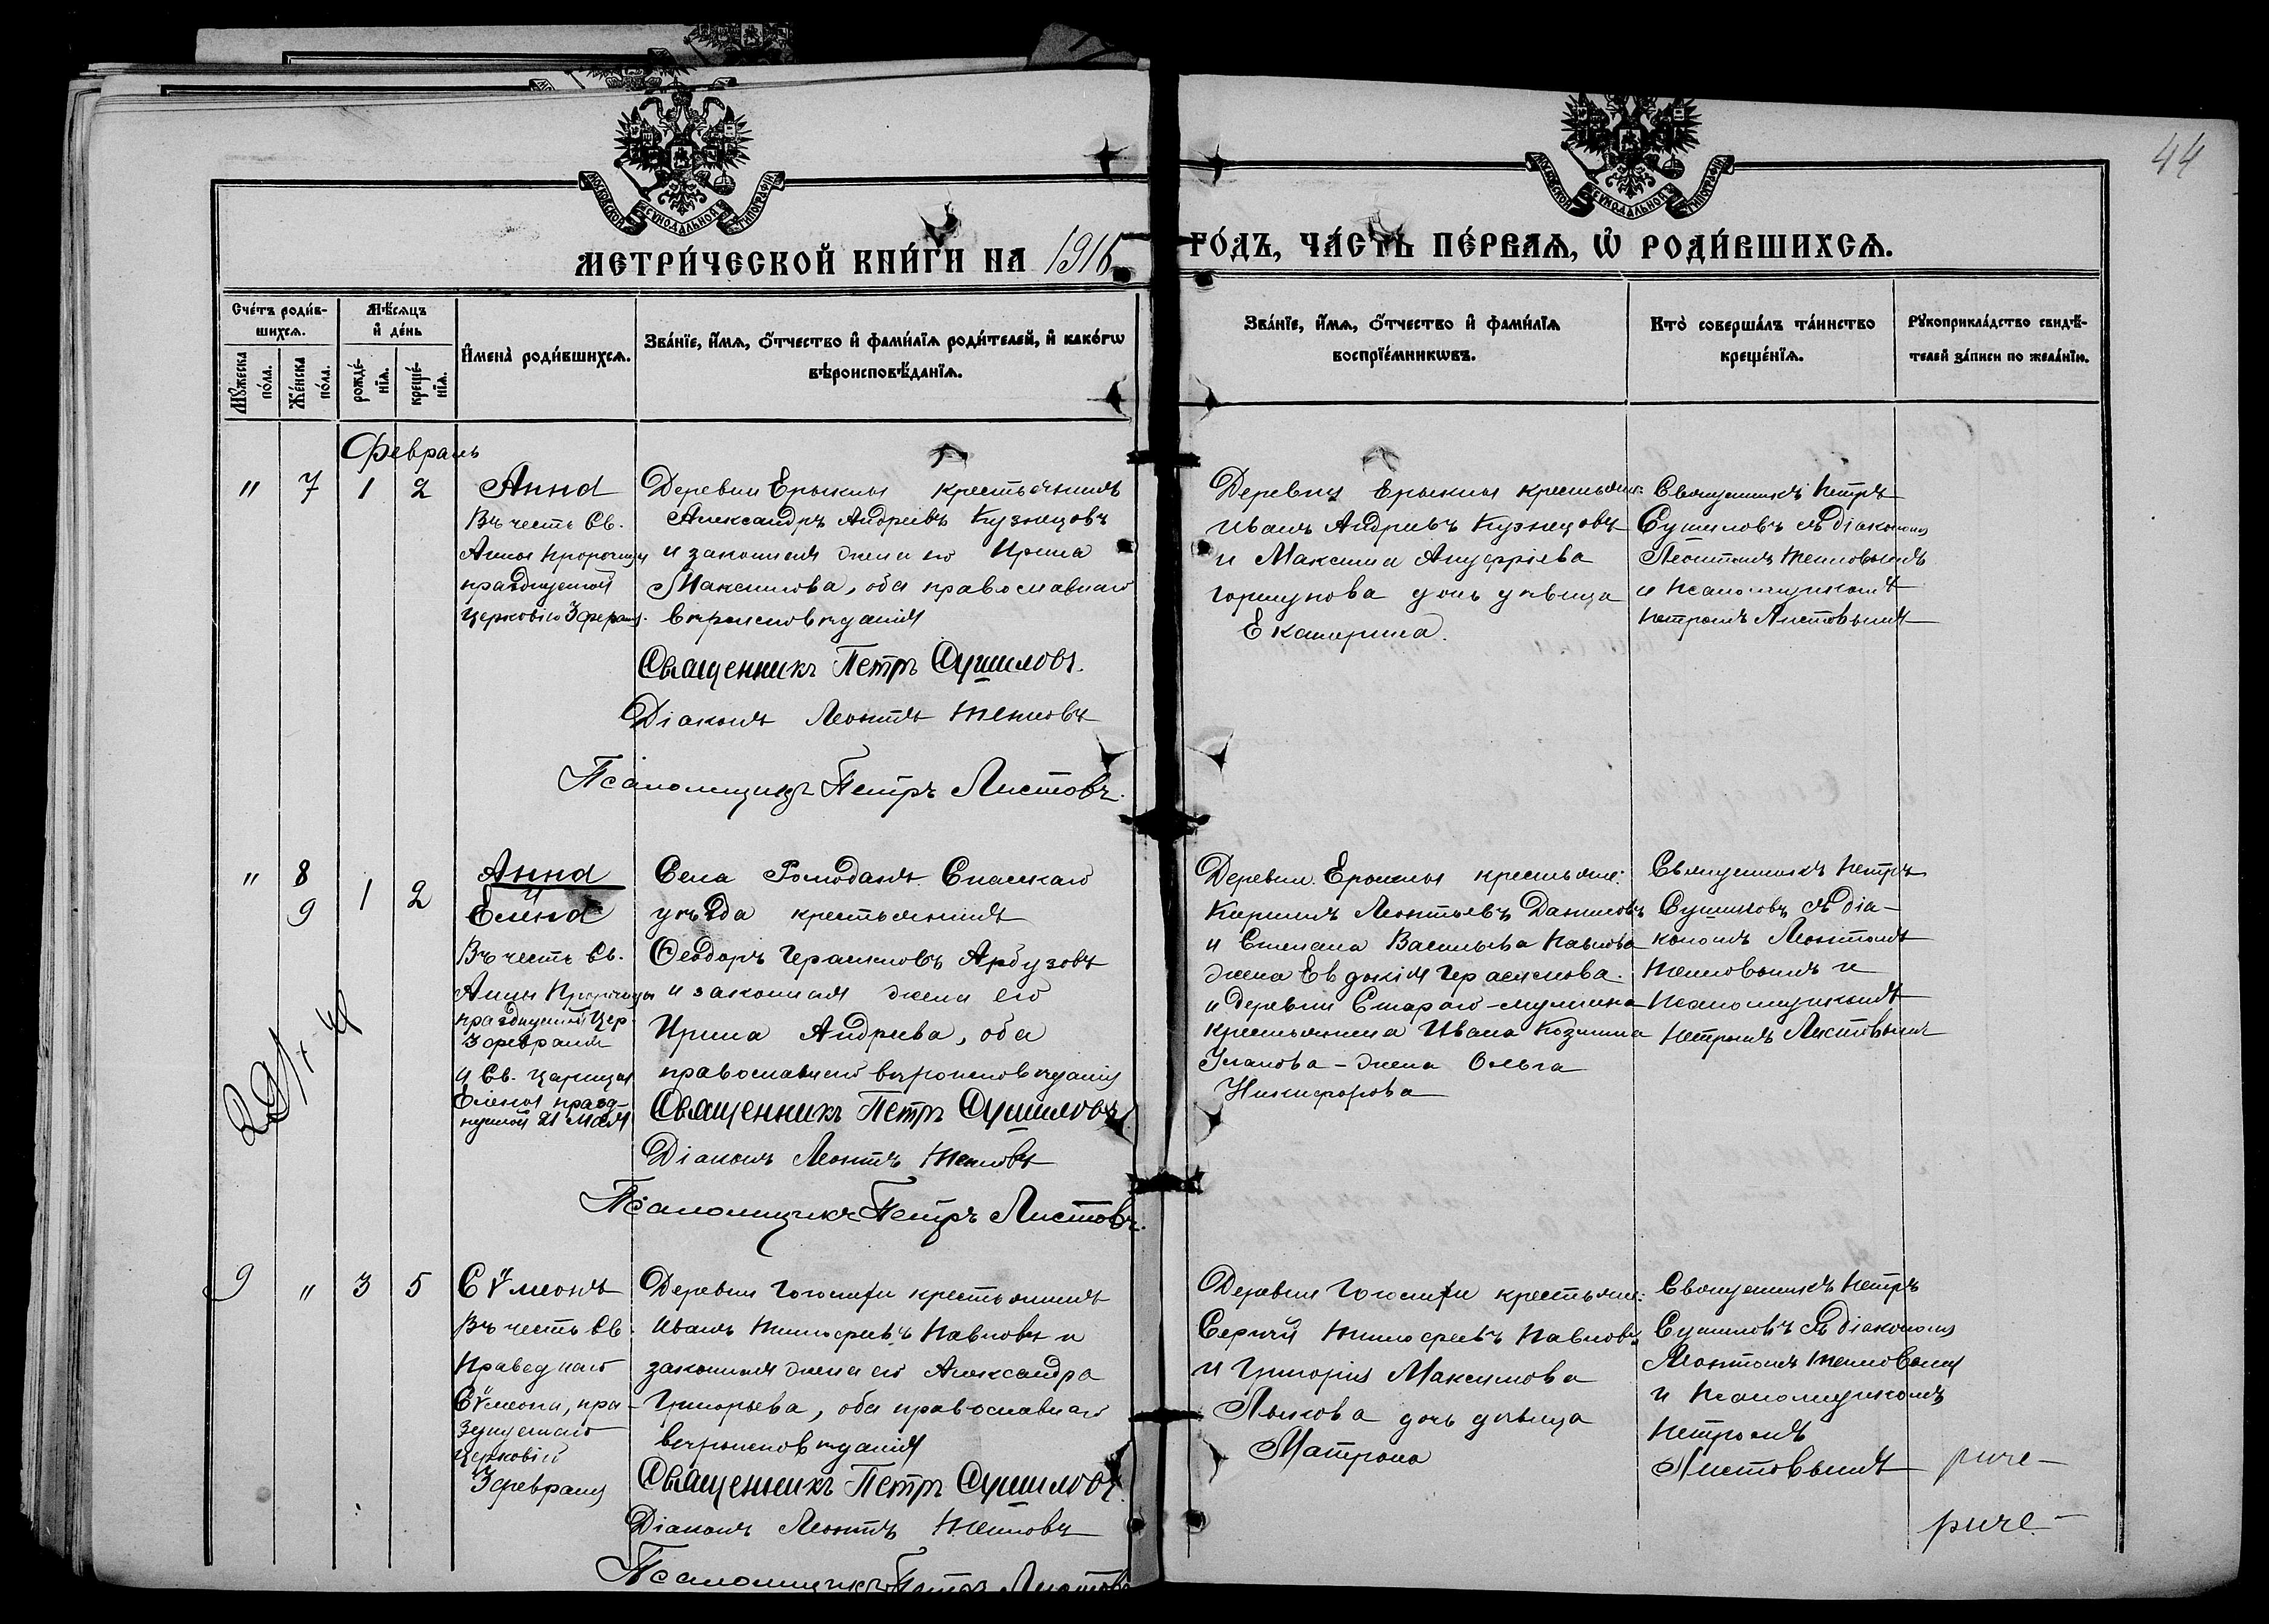 44
МОСКОВСКОЙ СѴНОДАЛЬНОЙ ТИПОГРАФІИ
МОСКОВСКОЙ СѴНОДАЛЬНОЙ ТИПОГРАФІИ
МЕТРИ́ЧЕСКОЙ КНИ́ГИ НА 1916 ГО́ДЪ, ЧА́СТЬ ПЕ́РВАѦ, Ѡ҆ РОДИ́ВШИХСѦ.
Сче́тъ роди́в-
шихсѧ.
Мꙋ́жеска
по́ла.
Же́нска
по́ла.
Мѣ́сѧцъ
и҆ де́нь
рожде́-
нїѧ.
креще́-
нїѧ.
И҆мена̀ роди́вшихсѧ.
Зва́нїе, и҆́мѧ, ѻ҆́тчество и҆ фами́лїѧ роди́телей, и҆ како́гѡ
вѣроисповѣ́данїѧ.
Зва́нїе, и҆́мѧ, ѻ҆́тчество и҆ фами́лїѧ
воспрїе́мникѡвъ.
Кто̀ соверша́лъ та́инство
креще́нїѧ.
Рꙋкоприкла́дство свидѣ́-
телей за́писи по жела́нїю.
Февраль
" 7 1 2
Анна
Въ честь Св.
Анны Пророчицы
празднуемой
Церковію 3 февраля.
Деревни Ерыклы крестьянинъ
Александръ Андреевъ Кузнецовъ
и законная жена его Ирина
Максимова, оба православнаго
вѣроисповѣданія
Священникъ Петръ Сушиловъ.
Діаконъ Леонтій Тепловъ
Псаломщикъ Петръ Листовъ.
Деревни Ерыклы крестьяне:
Иванъ Андреевъ Кузнецовъ
и Максима Ануфріева
Горшунова дочь дѣвица
Екатерина.
Священникъ Петръ
Сушиловъ съ діакономъ
Леонтіемъ Тепловымъ
и псаломщикомъ
Петромъ Листовымъ
" 8 9 1 2
Анна
и
Елена
Въ честь Св.
Анны Пророчицы
празднуемой Цер.
3 февраля
и Св. Царицы
Елены празд-
нуемой 21 Мая
Села Ромодана Спасскаго
уѣзда крестьянинъ
Ѳеодоръ Герасимовъ Арбузовъ
и законная жена его
Ирина Андреева, оба
православнаго вѣроисповѣданія
Священникъ Петръ Сушиловъ
Діаконъ Леонтій Тепловъ
Псаломщикъ Петръ Листовъ.
Деревни Ерыклы крестьяне:
Кириллъ Леонтьевъ Даниловъ
и Степана Васильева Павлова
жена Евдокія Герасимова.
и деревни Стараго-
крестьянина Ивана Козмина
Уланова - жена Ольга
Никифорова
Священникъ Петръ
Сушиловъ съ діа-
кономъ Леонтіемъ
Тепловымъ и
псаломщикомъ
Петромъ Листовымъ
9 " 3 5
Сѵмеонъ
Въ честь Св.
Праведнаго
Сѵмеона, пра-
зднуемаго
Церковію
3 февраля
Деревни крестьянинъ
Иванъ Тимофеевъ Павловъ и
законная жена его Александра
Григорьева, оба православнаго
вѣроисповѣданія
Священникъ Петръ Сушиловъ.
Діаконъ Леонтій Тепловъ
Псаломщикъ Петръ Листовъ
Деревни крестьяне:
Сергій Тимофеевъ Павловъ
и Григорія Максимова
дочь дѣвица
Матрона
Священникъ Петръ
Сушиловъ съ діакономъ
Леонтіемъ Тепловымъ
и псаломщикомъ
Петромъ
Листовымъ